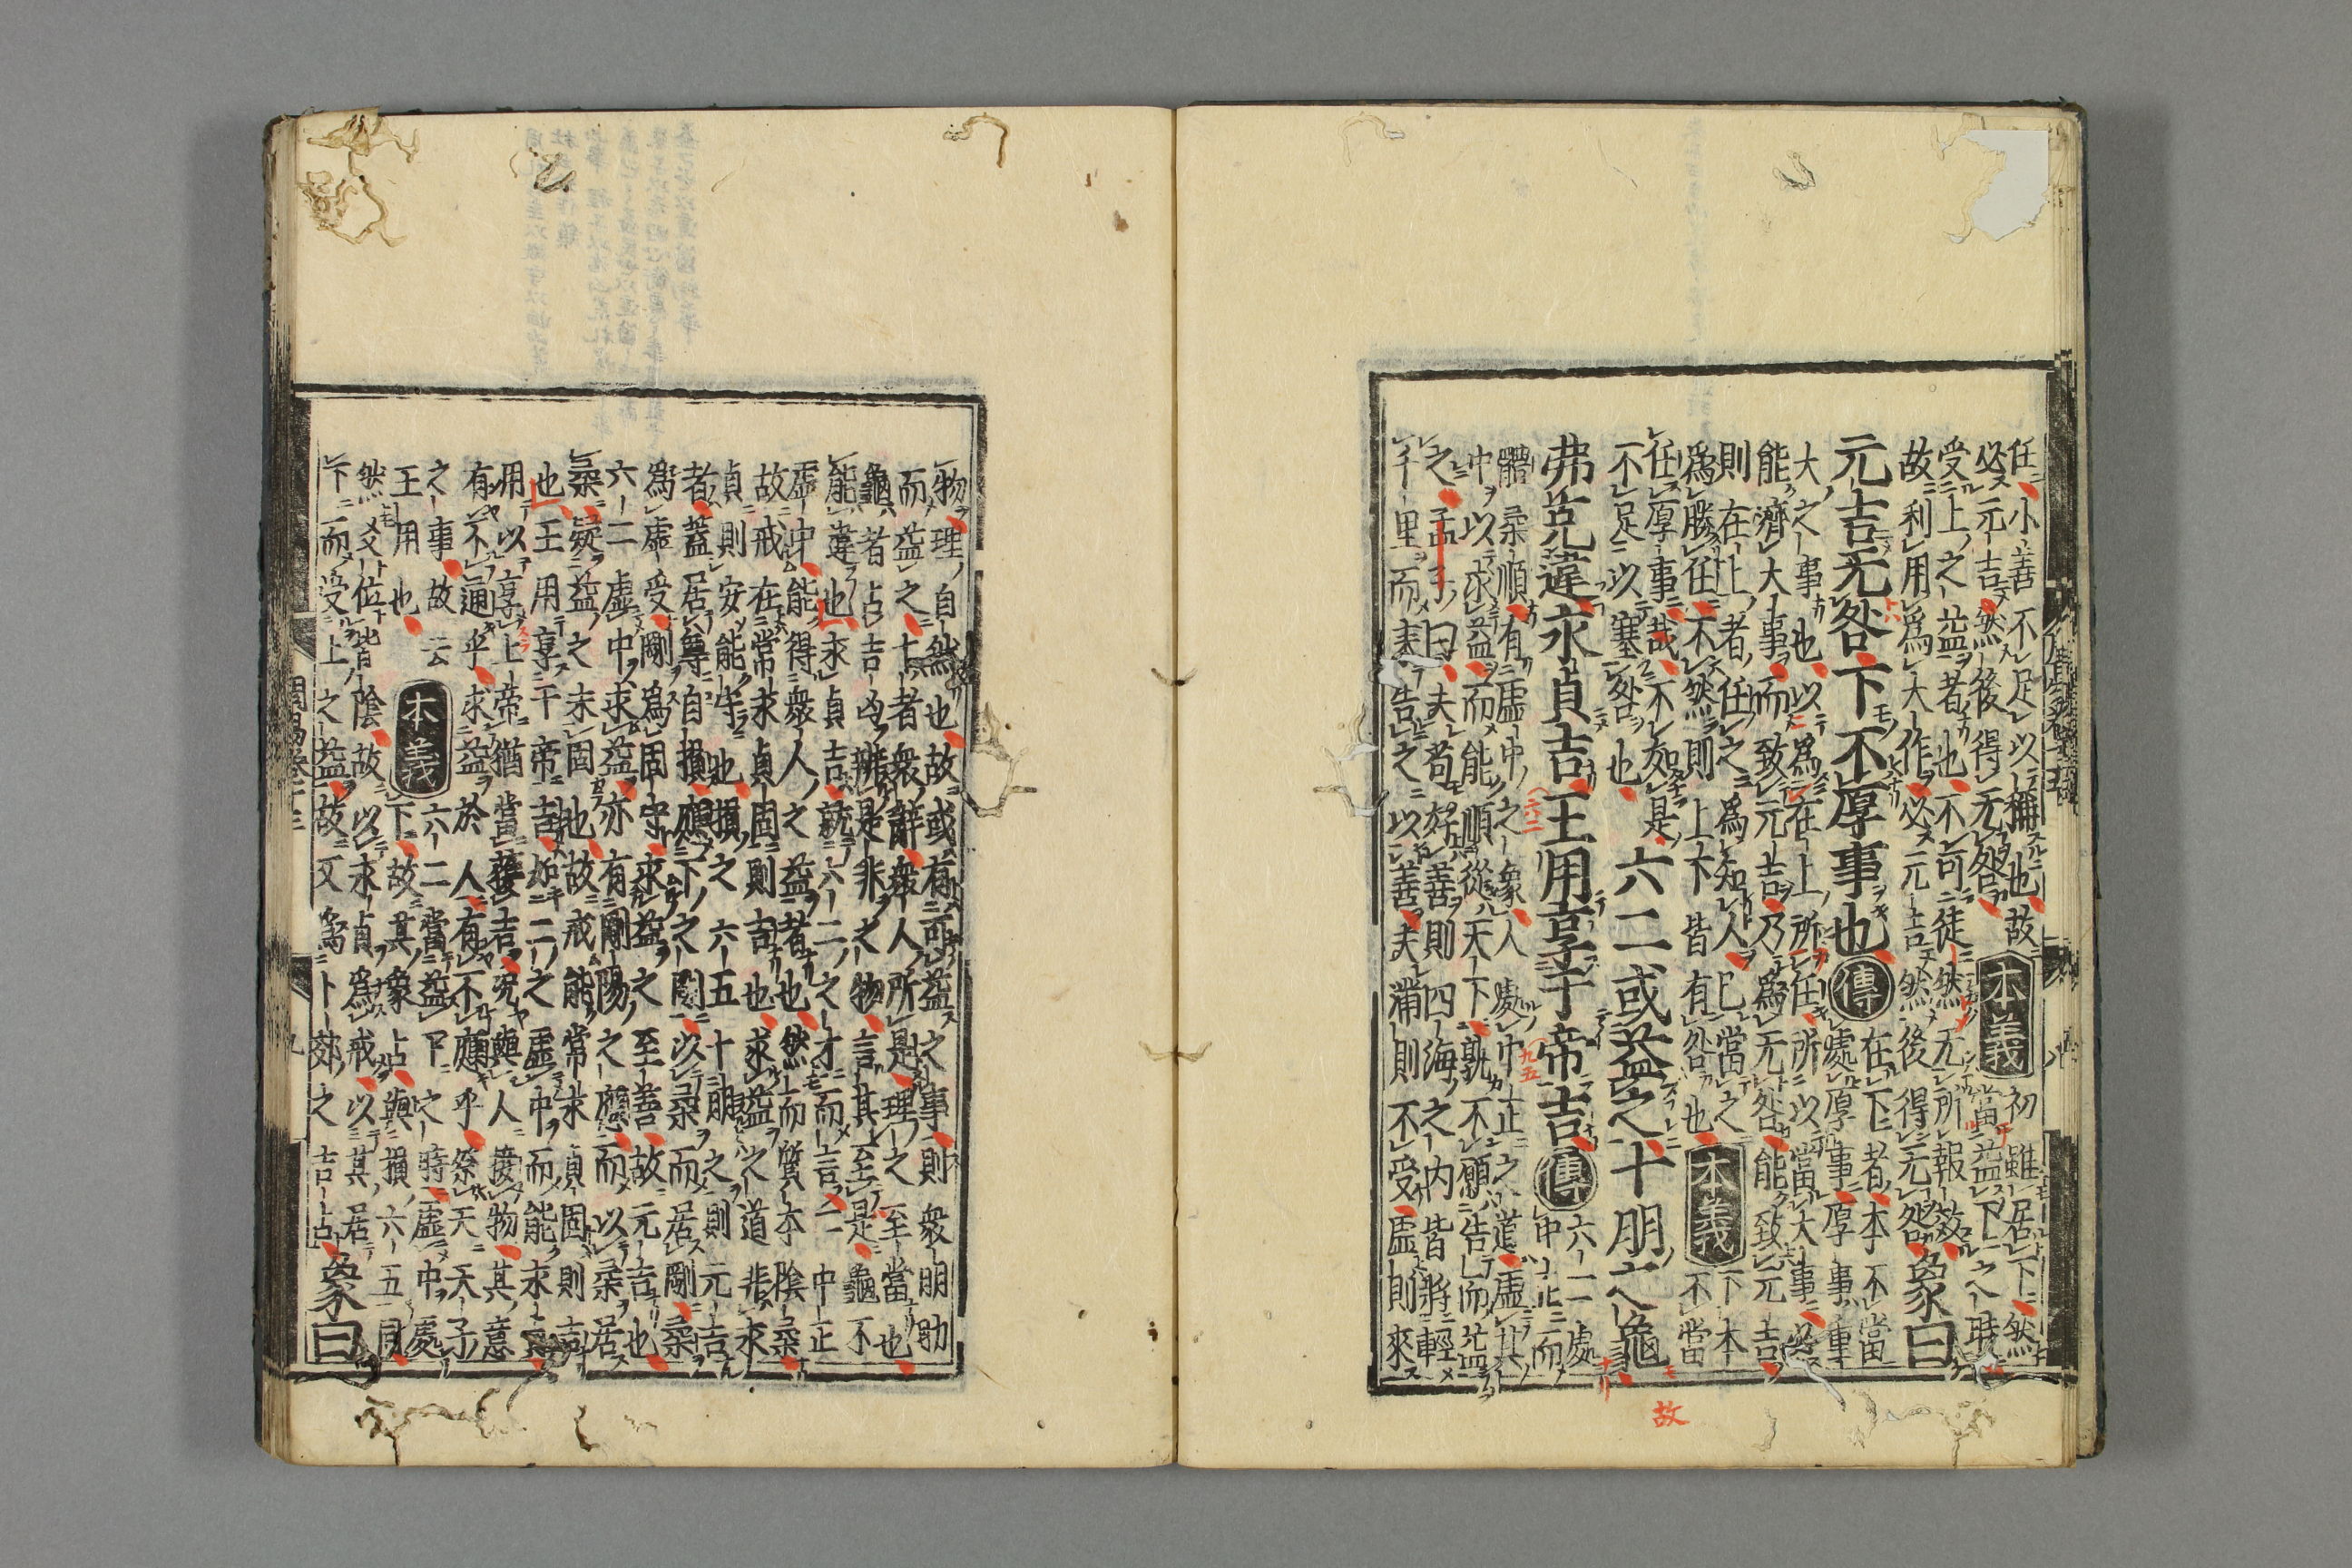 任小善不足以稱也故
必元吉然後得无咎
本義
初雖居下然
當益下之時
受上之益者也不可徒然无所報效
故利用爲大作必元吉然後得无咎
象曰
元吉无咎下不厚事也
傳
在下者本不當
處厚事厚事重
大之事也以爲在上所任所以當大事必
能濟大事而致元吉乃爲无咎能致元吉
則在上者任之爲知人已當之
爲勝任不然則上下皆有咎也
本義
下本
不當
任厚事哉不如是
不足以塞咎也
六二或益之十朋之龜
弗克違永貞吉王用享于帝吉
傳
六二處
中正而
體柔順有虛中之象人處中正之道虛其
中以求益而能順從天下孰不願告而益
之孟子曰夫苟好善則四海之內皆將輕
千里而來告之以善夫滿則不受虛則來
物理自然也故或有可益之事則衆朋助
而益之十者衆辭衆人所是理之至當也
龜者占吉凶辨是非之物言其至是龜不
能違也永貞吉就六二之才而言二中正
虛中能得衆人之益者也然而質本陰柔
故戒在常永貞固則吉也求益之道非永
貞則安能守也損之六五十朋之則元吉
者蓋居尊自損應下之剛以柔而居剛柔
爲虛受剛爲固守求益之至善故元吉也
六二虛中求益亦有剛陽之應而以柔居
柔疑益之未固也故戒能常永貞固則吉
也王用享于帝吉如二之虛中而能永貞
用以享上帝猶當獲吉況與人接物其意
有不通乎求益於人有不應乎祭天天子
之事故云
王用也
本義
六二當益下之時虛中處
下故其象占與損六五同
然爻位皆陰故以永貞爲戒以其居
下而受上之益故又爲卜郊之吉占
象曰
周易卷十三
九
故